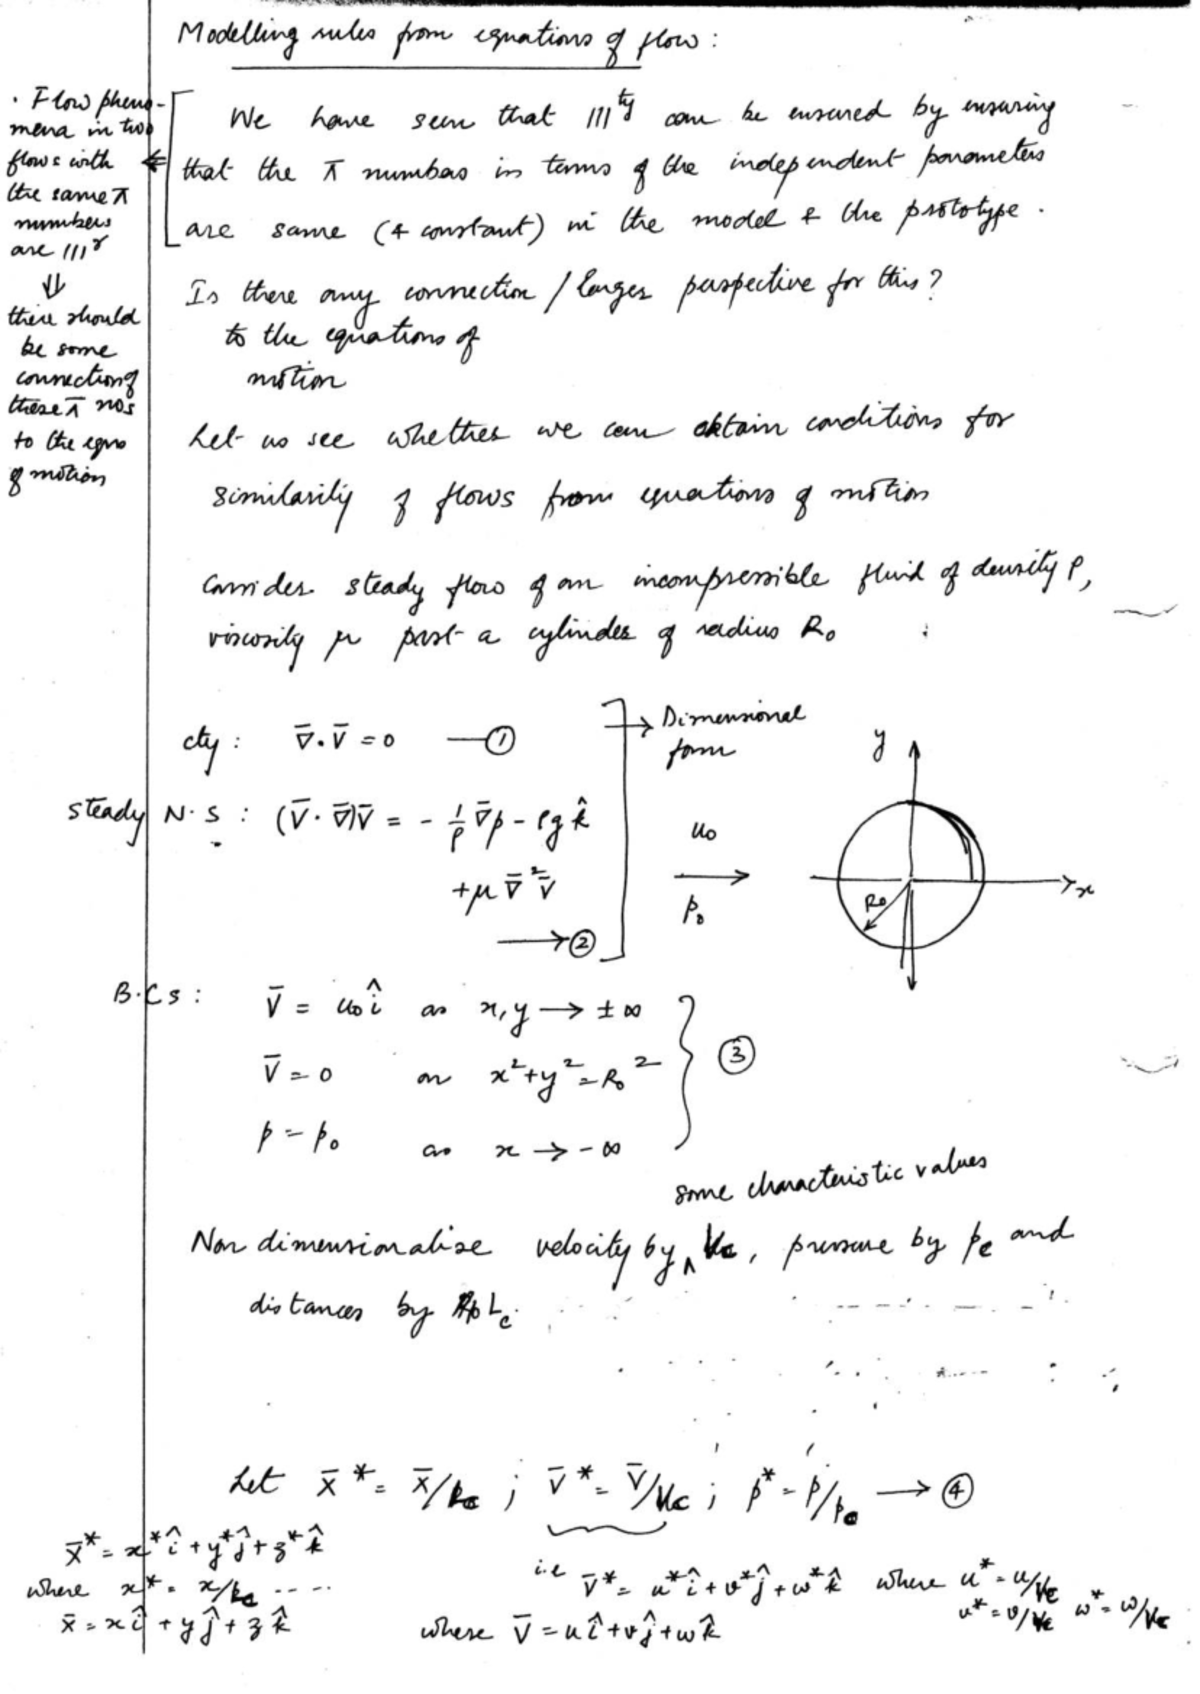 Modelling rules from equations of flow :
· Flow pheno-
mena in two
flows with
the same π
numbers
are |||r
⇓
there should
be some
connection of
these π nos
to the eqns
of motion
We have seen that |||ty can be ensured by ensuring
that the π numbers in terms of the independent parameters
are same (& constant) in the model & the prototype .
Is there any connection / larger perspective for this ?
to the equations of
motion
Let us see whether we can obtain conditions for
similarity of flows from equations of motion
Consider steady flow of an incompressible fluid of density ρ,
viscosity μ past a cylinder of radius R₀
cty : ∇̄.V̄ = 0 —①
→ Dimensional
form
steady N.S : (V̄.∇̄)V̄ = - 1/ρ ∇̄p - ρg k̂
+μ ∇̄²V̄
→②
y
u₀
p₀
R₀
x
B.Cs : V̄ = u₀ î as x, y → ± ∞
V̄ = 0 on x²+y² = R₀²
③
p = p₀ as x → - ∞
some characteristic values
Non dimensionalise velocity by ∧ Vc, pressure by pc and
distances by Lc.
Let x̄* = x̄/Lc ; V̄* = V̄/Vc ; p* = p/pc → ④
x̄* = x* î + y* ĵ + z* k̂
where x* = x/Lc ----
x̄ = x î + y ĵ + z k̂
i.e V̄* = u* î + v* ĵ + w* k̂ where u* = u/Vc
v* = v/Vc w* = w/Vc
where V̄ = u î + v ĵ + w k̂